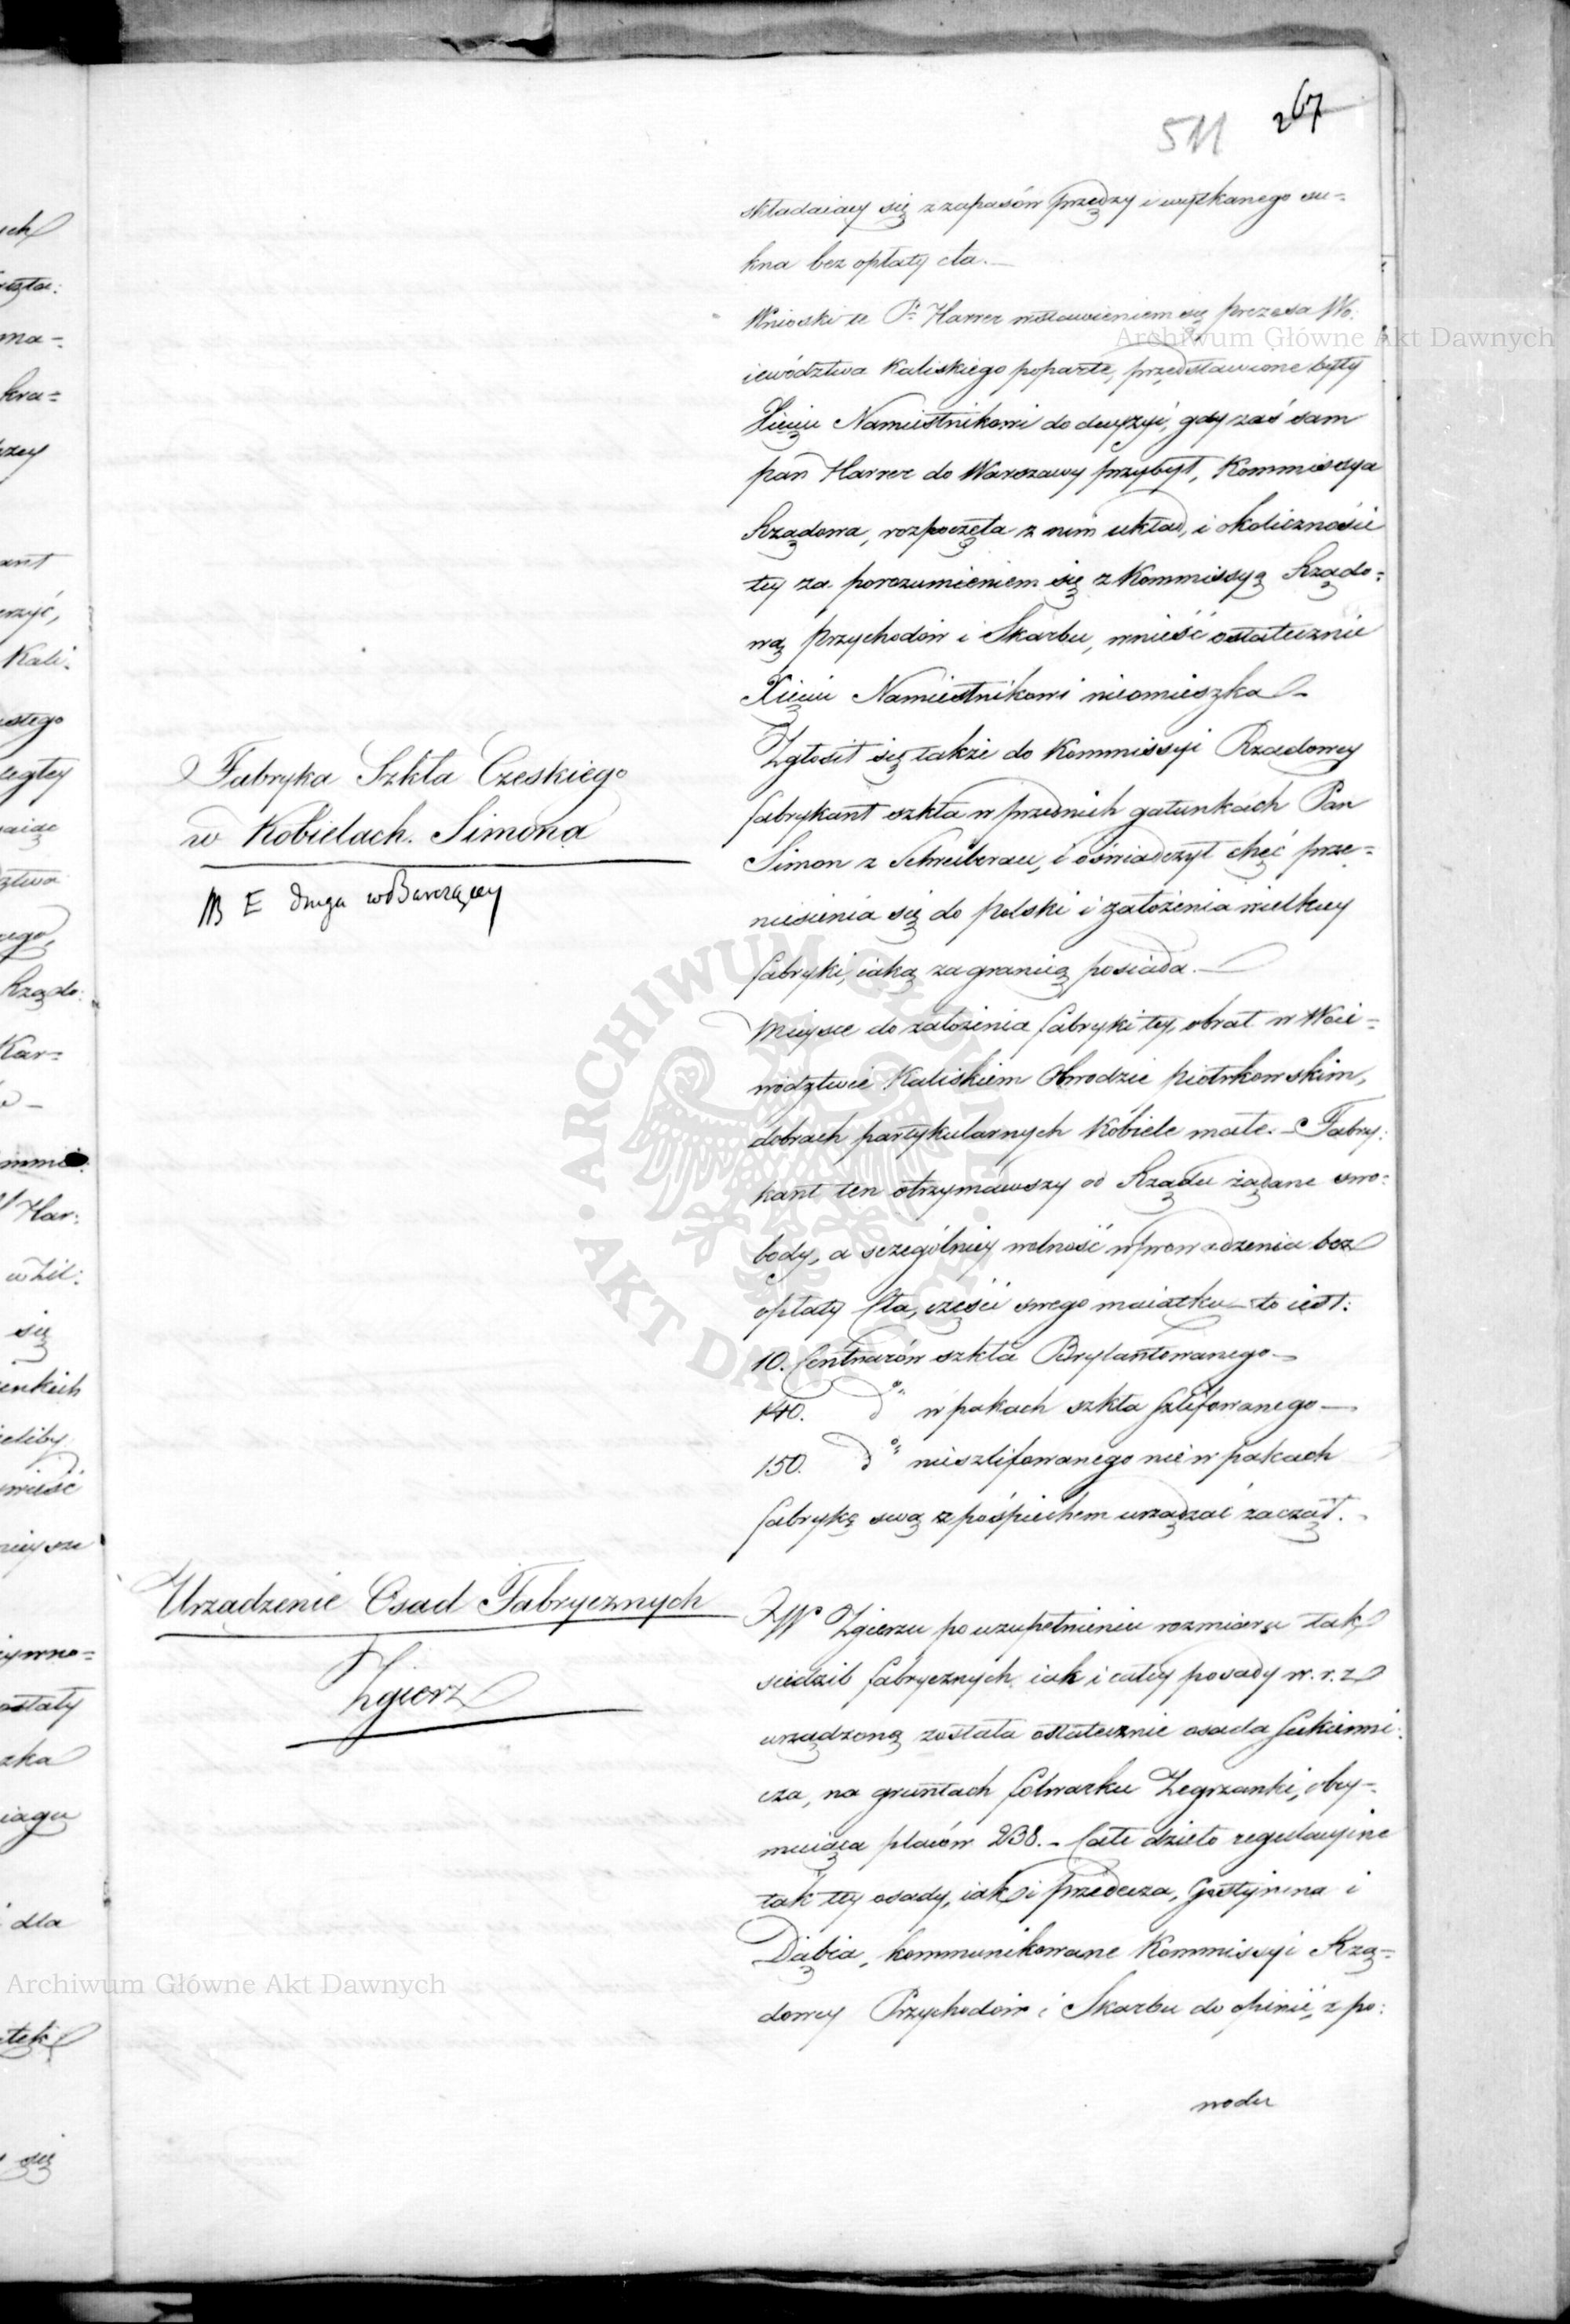 511 267
składaiący się z zapasów przędzy i wytkanego su=
kna bez opłaty cła.—
Wnioski te P. Harrer wstawieniem się prezesa Wo:
iewództwa Kaliskiego poparte, przedstawione były
Xięciu Namiestnikowi do decyzyi, gdy zaś sam
pan Harrer do Warszawy przybył, Kommissya
Rządowa, rozpoczęła z nim układ, i okoliczności
tey za porozumieniem się z Kommissyą Rządo=
wą Przychodów i Skarbu, wnieść ostatecznie
Xięciu Namiestnikowi nieomieszka—
Fabryka Szkła Czeskiego
w Kobielach. Simona
NB E druga w Barczącey
Zgłosił się także do Kommissyi Rządowey
fabrykant szkła w przednich gatunkach Pan
Simon z Schreiberau, i oświadczył chęć prze=
niesienia się do Polski i założenia wielkiey
fabryki, iaką za granicą posiada.—
Mieysce do założenia fabryki tey, obrał w Woie=
wództwie Kaliskiem Obwodzie piotrkowskim,
dobrach partykularnych Kobiele małe.— Fabry:
kant ten otrzymawszy od Rządu żądane swo:
body, a szczególniey wolność wprowadzenia bez
opłaty Cła, części swego maiątku— to iest:
10. Centnarów szkła Brylantowanego—
140. do w pakach szkła szlifowanego—
150. do nieszlifowanego nie w pakach
fabrykę swą z pośpiechem urządzać zaczął.—
Urządzenie Osad Fabrycznych
Zgierz
W Zgierzu po uzupełnieniu rozmiaru tak
siedzib fabrycznych, iak i całey posady w. r. z
urządzoną została ostatecznie osada Sukienni:
cza, na gruntach folwarku Zegrzanki, obey=
muiąca placów 238.— Całe dzieło regulacyine
tak tey osady, iak i Przedecza, Gostynina i
Dąbia, kommunikowane Kommissyi Rzą=
dowey Przychodów i Skarbu do opinii, z po:
wodu
Archiwum Główne Akt Dawnych
Archiwum Główne Akt Dawnych
ARCHIWUM GŁÓWNE AKT DAWNYCH